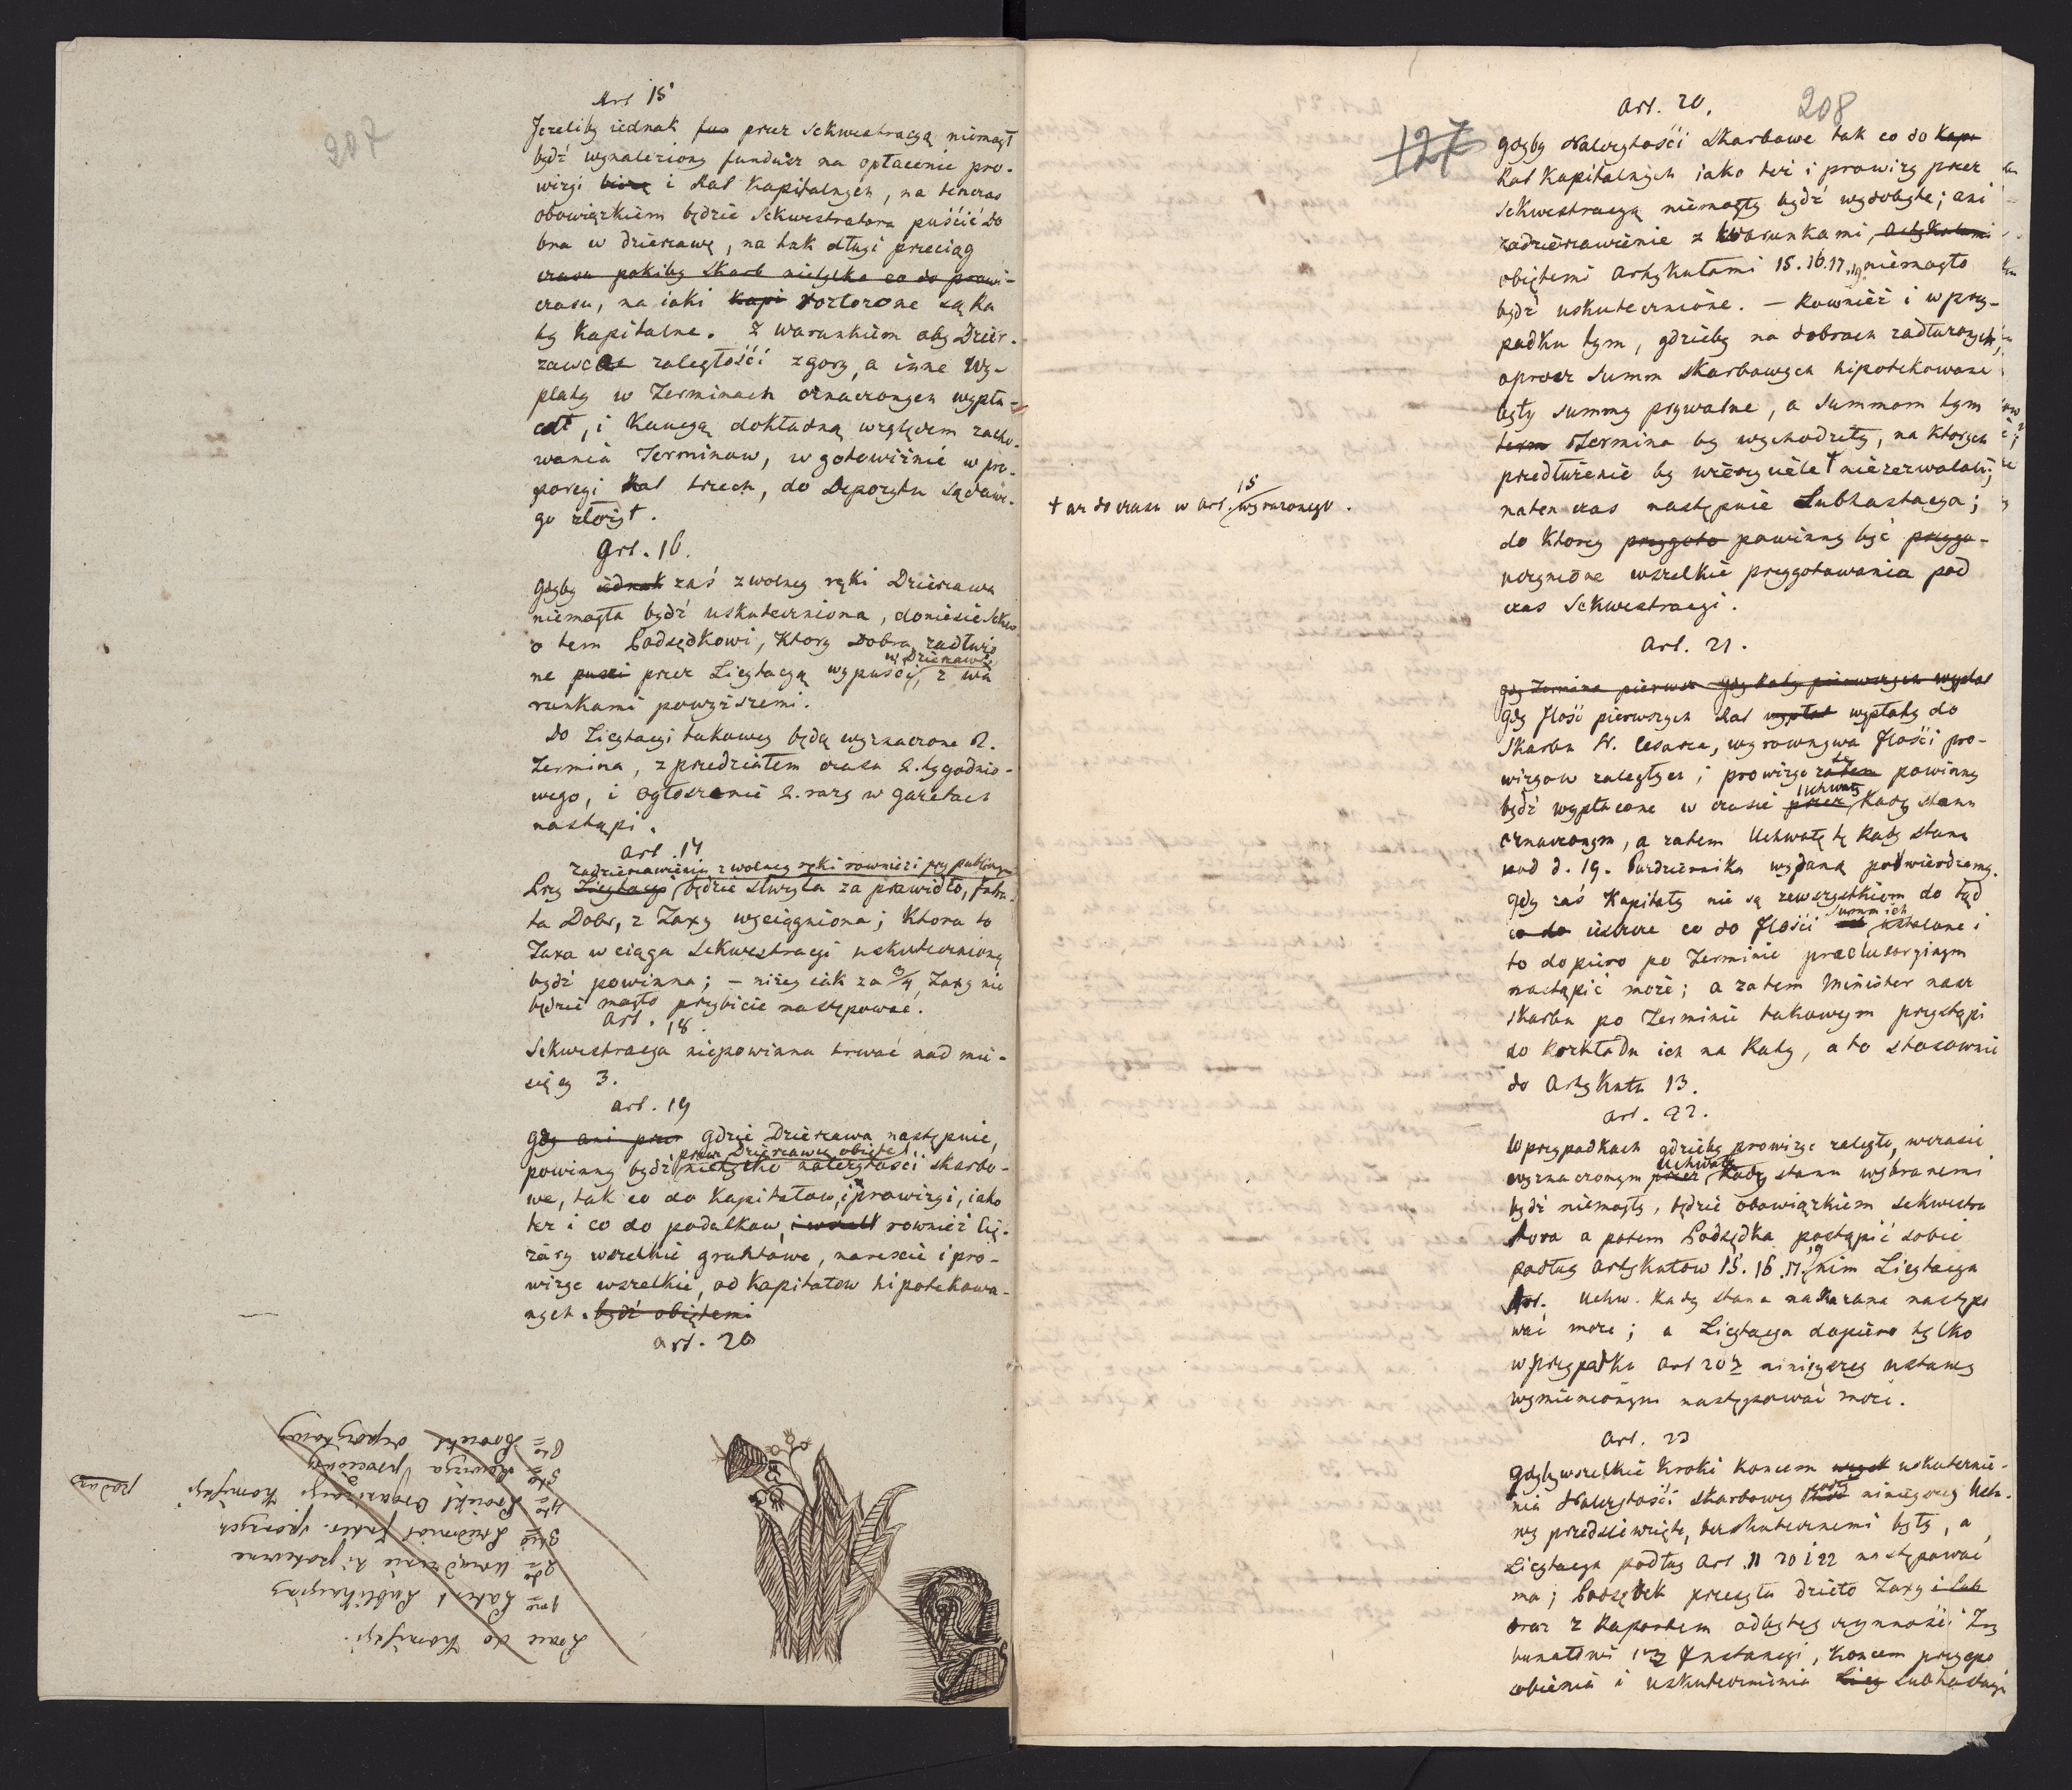 207
Art 15
Jezeliby iednak fun przez Sekwestracyą niemógł
bydź wynaleziony fundusz na opłacenie pro-
wizyi bieżą i Rat Kapitalnych, na tenczas
obowiązkiem będzie Sekwestratora puścić Do
bra w dzierzawę, na tak długi przeciąg
czasu pokiby Skarb nietylko co do prowi-
czasu, na iaki Kapi rozłorzone są Ra
ty Kapitalne. Z warunkiem aby Dzier-
zawca zaległości zgory, a inne wy-
płaty w Terminach oznaczonych wypła-
cał, i Kaucyą dokładną względem zacho-
wania Terminow, w gotowiźnie w pro-
porcyi Rat trzech, do Depozytu Sądowe-
go złożył.
Art. 16.
Gdyby iednak zaś z wolney ręki Dzierzawa
niemogła bydź uskuteczniona, doniesie Sekw
o tem Podsędkowi, ktory Dobra zadłużo
ne puszci przez Licytacyą wypuści, z wa
w Dzierzawę
runkami powyższemi.
Do Licytacyi takowey będą wyznaczone 2.
Termina, z przedziałem czasu 2. tygodnio-
wego, i ogłoszenie 2. razy w gazetach
nastąpi.
Art. 17
Zadzierzawieniu z wolney ręki rownież i przy publiczny
Przy Licytacyi będzie służyła za prawidło, Intra-
ta Dobr, z Taxy wyciągniona; Ktora to
Taxa w ciągu Sekwestracyi uskutecznioną
bydź powinna; – niżey iak za 3/4 Taxy nie
będzie mogło przybicie następować.
Art. 18.
Sekwestracya niepowinna trwać nad mie-
sięcy 3.
Art. 19
gdy ani przez gdzie Dzierzawa nastąpnie,
przez Dzierzawcę obięte
powinny bydź nietylko należytości Skarbo-
we, tak co do Kapitałow, i prowizyi, iako
też i co do podatkow, i wszelk rownież cię-
zary wszelkie gruntowe, nareszcie i pro-
wizye wszelkie, od Kapitałow hipotekowa-
nych. bydź obiętemi
Art. 20
Prace do Komissyi.
1ne Patent Publikacyiny
2do Urządzenie hipoteczne
3tio Przedmiot sporzych
4to Proiekt Organizacyi Komissyi
podany
5to Prowizya
6to Proiekt depozytowy
127
208
Art. 20.
Gdyby Należytości Skarbowe tak co do Kapi
Rat Kapitalnych iako też i prowizy przez
Sekwestracyą niemogły bydź wydobyte; ani
zadzierzawienie z warunkami Artykułami
obiętemi Artykułami 15. 16. 17. 19. niemogło
bydź uskutecznione. – Rownież i w przy-
padku tym, gdzieby na dobrach zadłużonych,
oprocz Summ Skarbowych hipotekowane
były Summy prywatne, a Summom tym
term Termina by wychodziły, na ktorych
przedłużenie by wierzyciele † niezezwalali;
naten czas następnie Subhastacya;
do Ktorey przygoto powinny być przygo-
uczynione wszelkie przygotowania pod
czas Sekwestracyi.
† az do czasu w Art. 15 wyrażonego.
Art. 21.
gdy Termina pierwsze gdy Raty pierwszych wypłat
Gdy Ilość pierwszych Rat wypłat wypłaty do
Skarbu N. Cesarza, wyrownywa Ilości pro-
wizyow zaległych; prowizye zatem powinny
te
bydź wypłacone w czasie przez Rady stanu
Uchwałą
oznaczonym, a zatem Uchwałę tę Rady Stanu
pod d. 19. Pazdziernika wydaną potwierdzamy.
Gdy zaś Kapitały nie są zewszystkiem do tąd
co do ieszcze co do Ilości ustalone i
Summ ich
to dopiero po Terminie praeclusoryinym
nastąpić może; a zatem Minister nasz
Skarbu po Terminie takowym przystąpi
do Rozkładu ich na Raty, a to stosownie
do Artykułu 13.
Art. 22.
W przypadkach gdzieby prowizye zaległe, w czasie
wyznaczonym przez Rady stanu wybranemi
Uchwałą
bydź niemogły, będzie obowiązkiem Sekwestra
tora a potem Podsędka postąpić sobie
podług Artykułow 15. 16. 17. 19 nim Licytacya
Art. Uchw. Rady Stanu nakazana następo
wać może; a Licytacya dopiero tylko
w przypadku Art 20 ninieyszey ustawy
wymienionym następować może.
Art. 23
Gdyby wszelkie Kroki Koncem uskutecznie-
nia Należytości Skarbowey podług ninieyszey Usta-
wy przedsięwzięte, bezskutecznemi były, a
Licytacya podług Art. 20 i 22 następować
ma; Podsędek przeszła dzieło Taxy i Lub
oraz z Raportem odbytey czynności Try
bunałowi 1ey Instancyi, Koncem przyspo
sobienia i uskutecznienia Licy Subhastacyi